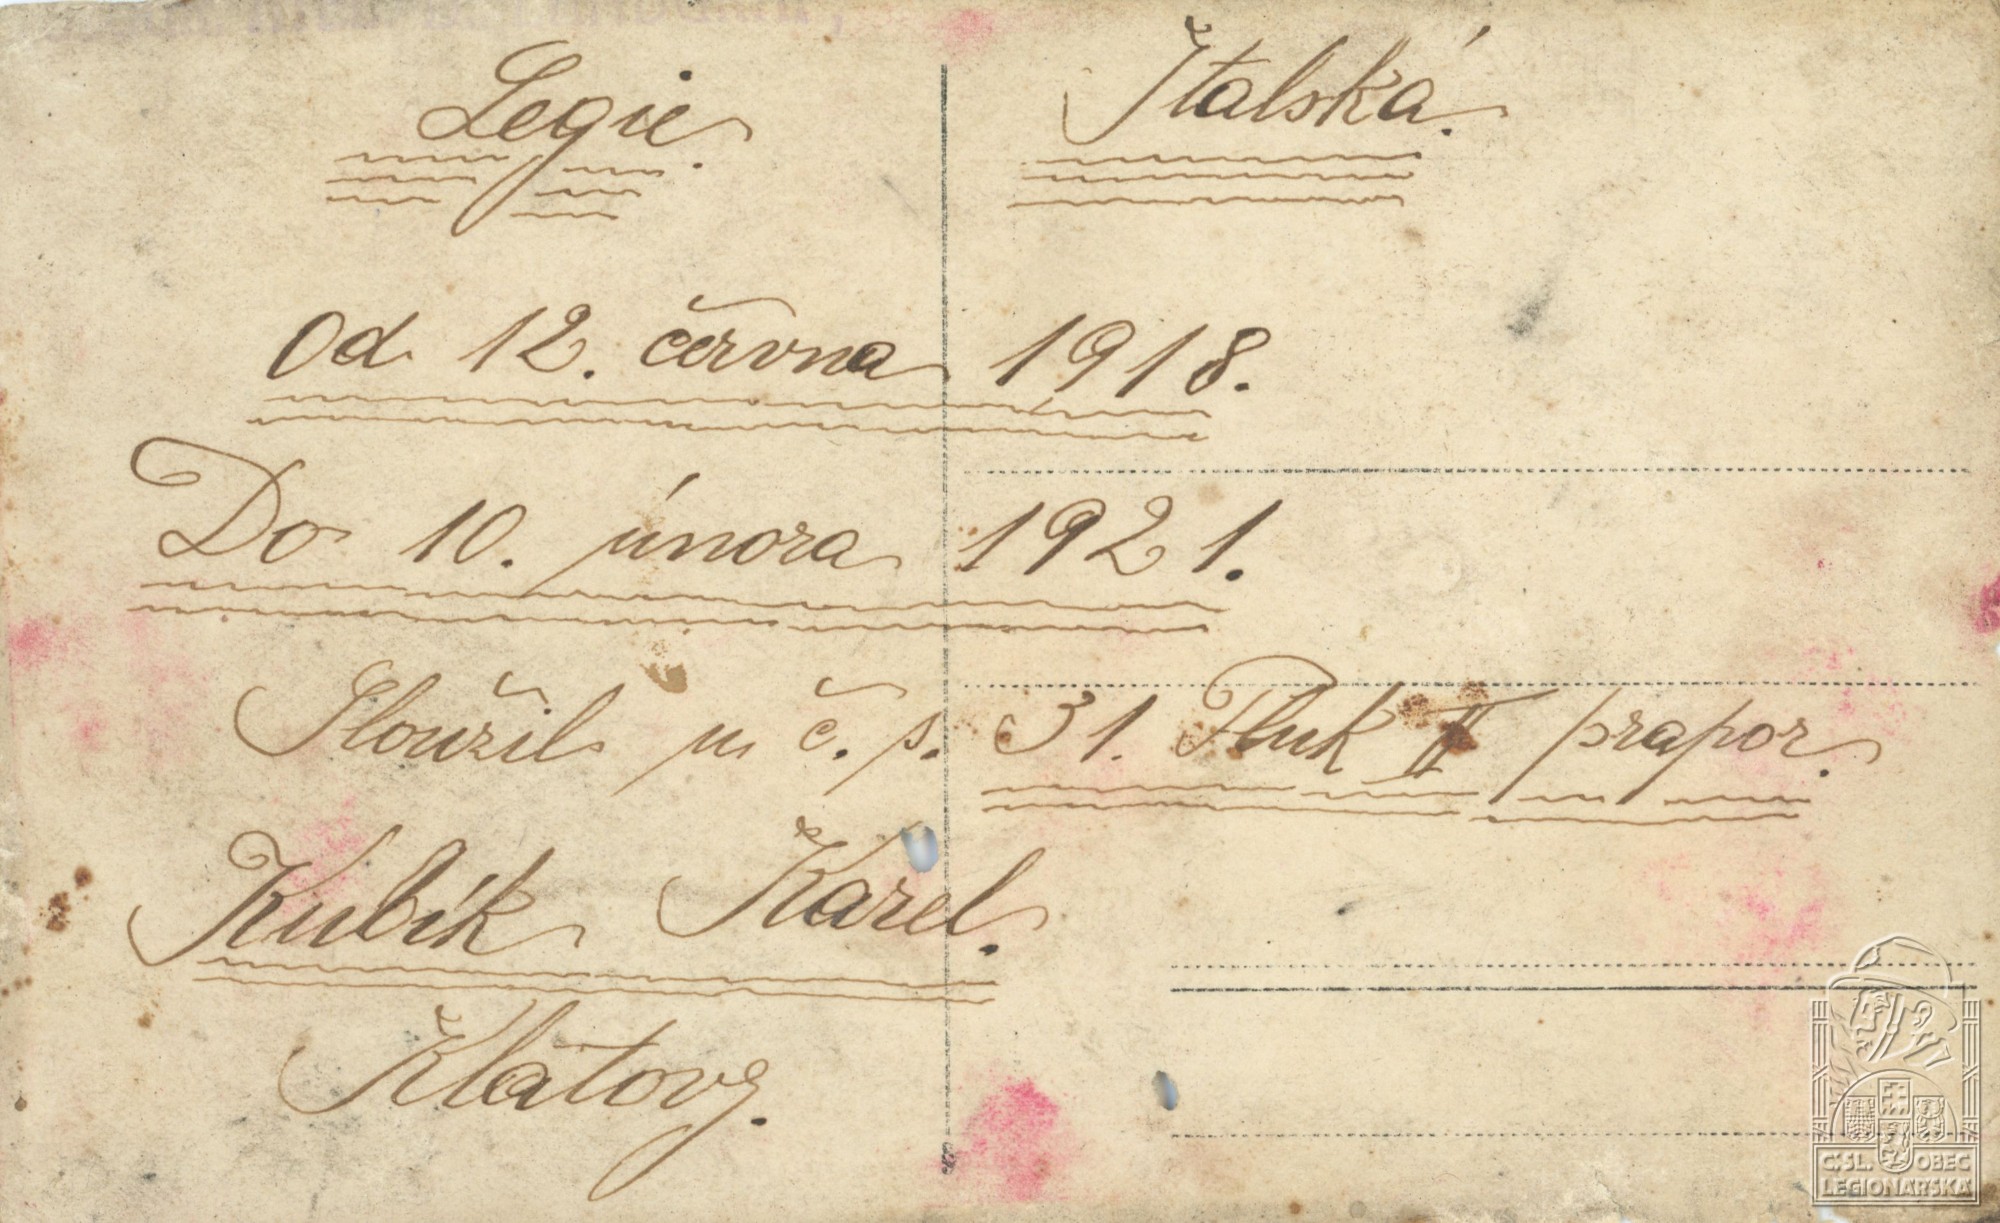 Legie. Italská.
Od 12. června 1918.
Do 10. února 1921.
Sloužil u č. p. 31. Pluk II prapor.
Kubík Karel.
Klatovy.
Č.SL. OBEC
LEGIONÁŘSKÁ